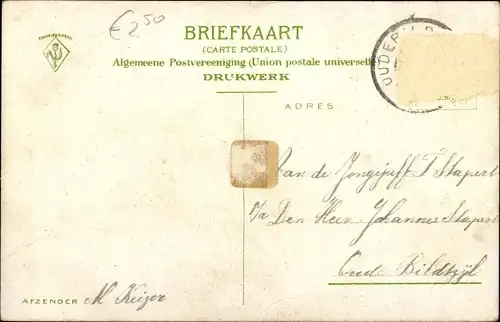 € 2.50
BRIEFKAART
(CARTE POSTALE)
Algemeene Postvereeniging (Union postale universelle)
DRUKWERK
ADRES
Aan de Jongejuff T Stapert
p/a Den Heer Johannes Stapert
Oude Bildtzijl
AFZENDER M Keizer